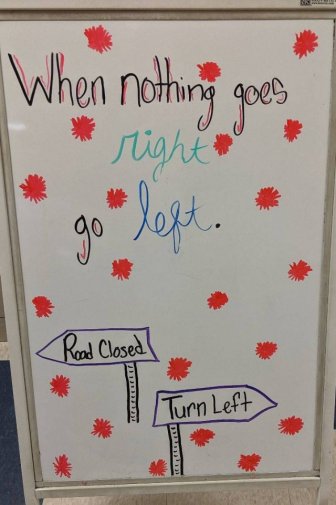 When nothing goes
right
go left.
Road Closed
Turn Left